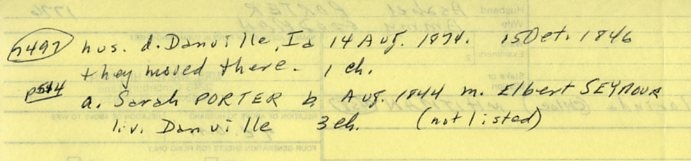 p497 hus. d. Danville, Ia 14 Aug. 1874. 15 Oct. 1846
they moved there. 1 ch.
p514 a. Sarah PORTER b. Aug. 1844 m. Elbert SEYMOUR
liv. Danville 3 ch. (not listed)